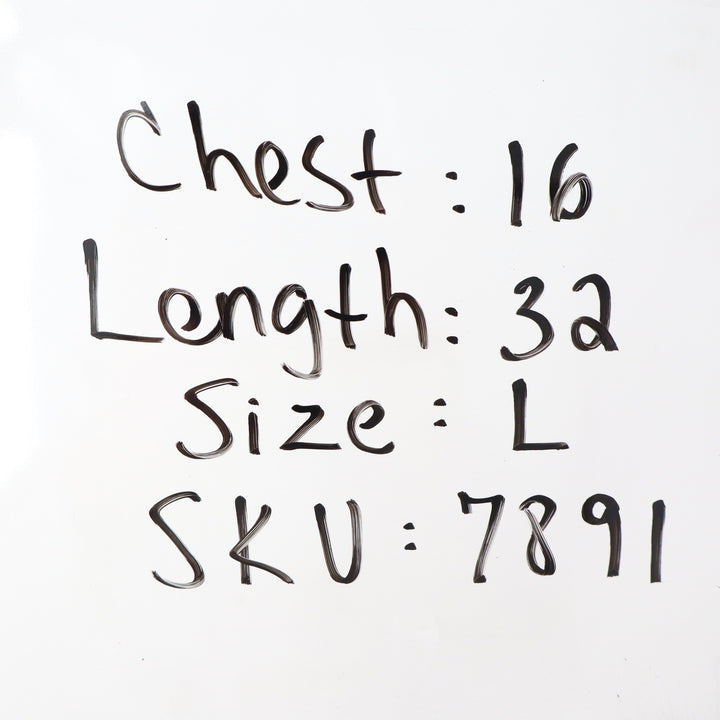 Chest: 16
Length: 32
Size: L
SKU: 7891